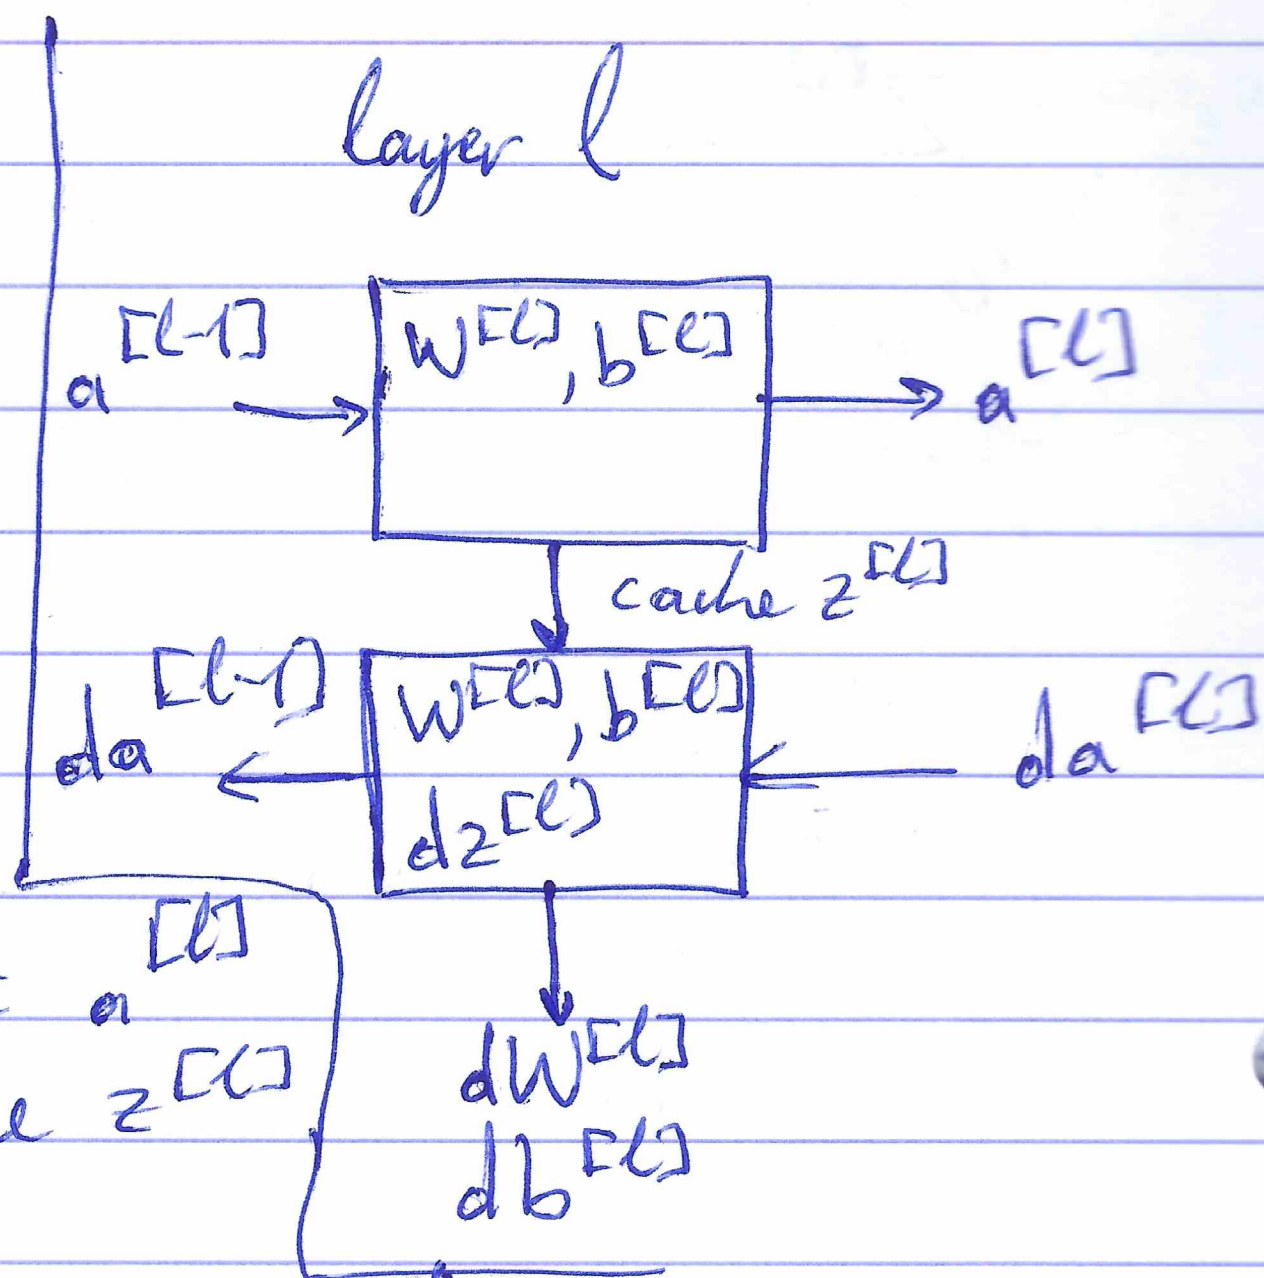 layer l
a^[l-1] → W^[l], b^[l] → a^[l]
cache z^[l]
da^[l-1] ← W^[l], b^[l] ← da^[l]
dz^[l]
a^[l]
z^[l]
dW^[l]
db^[l]